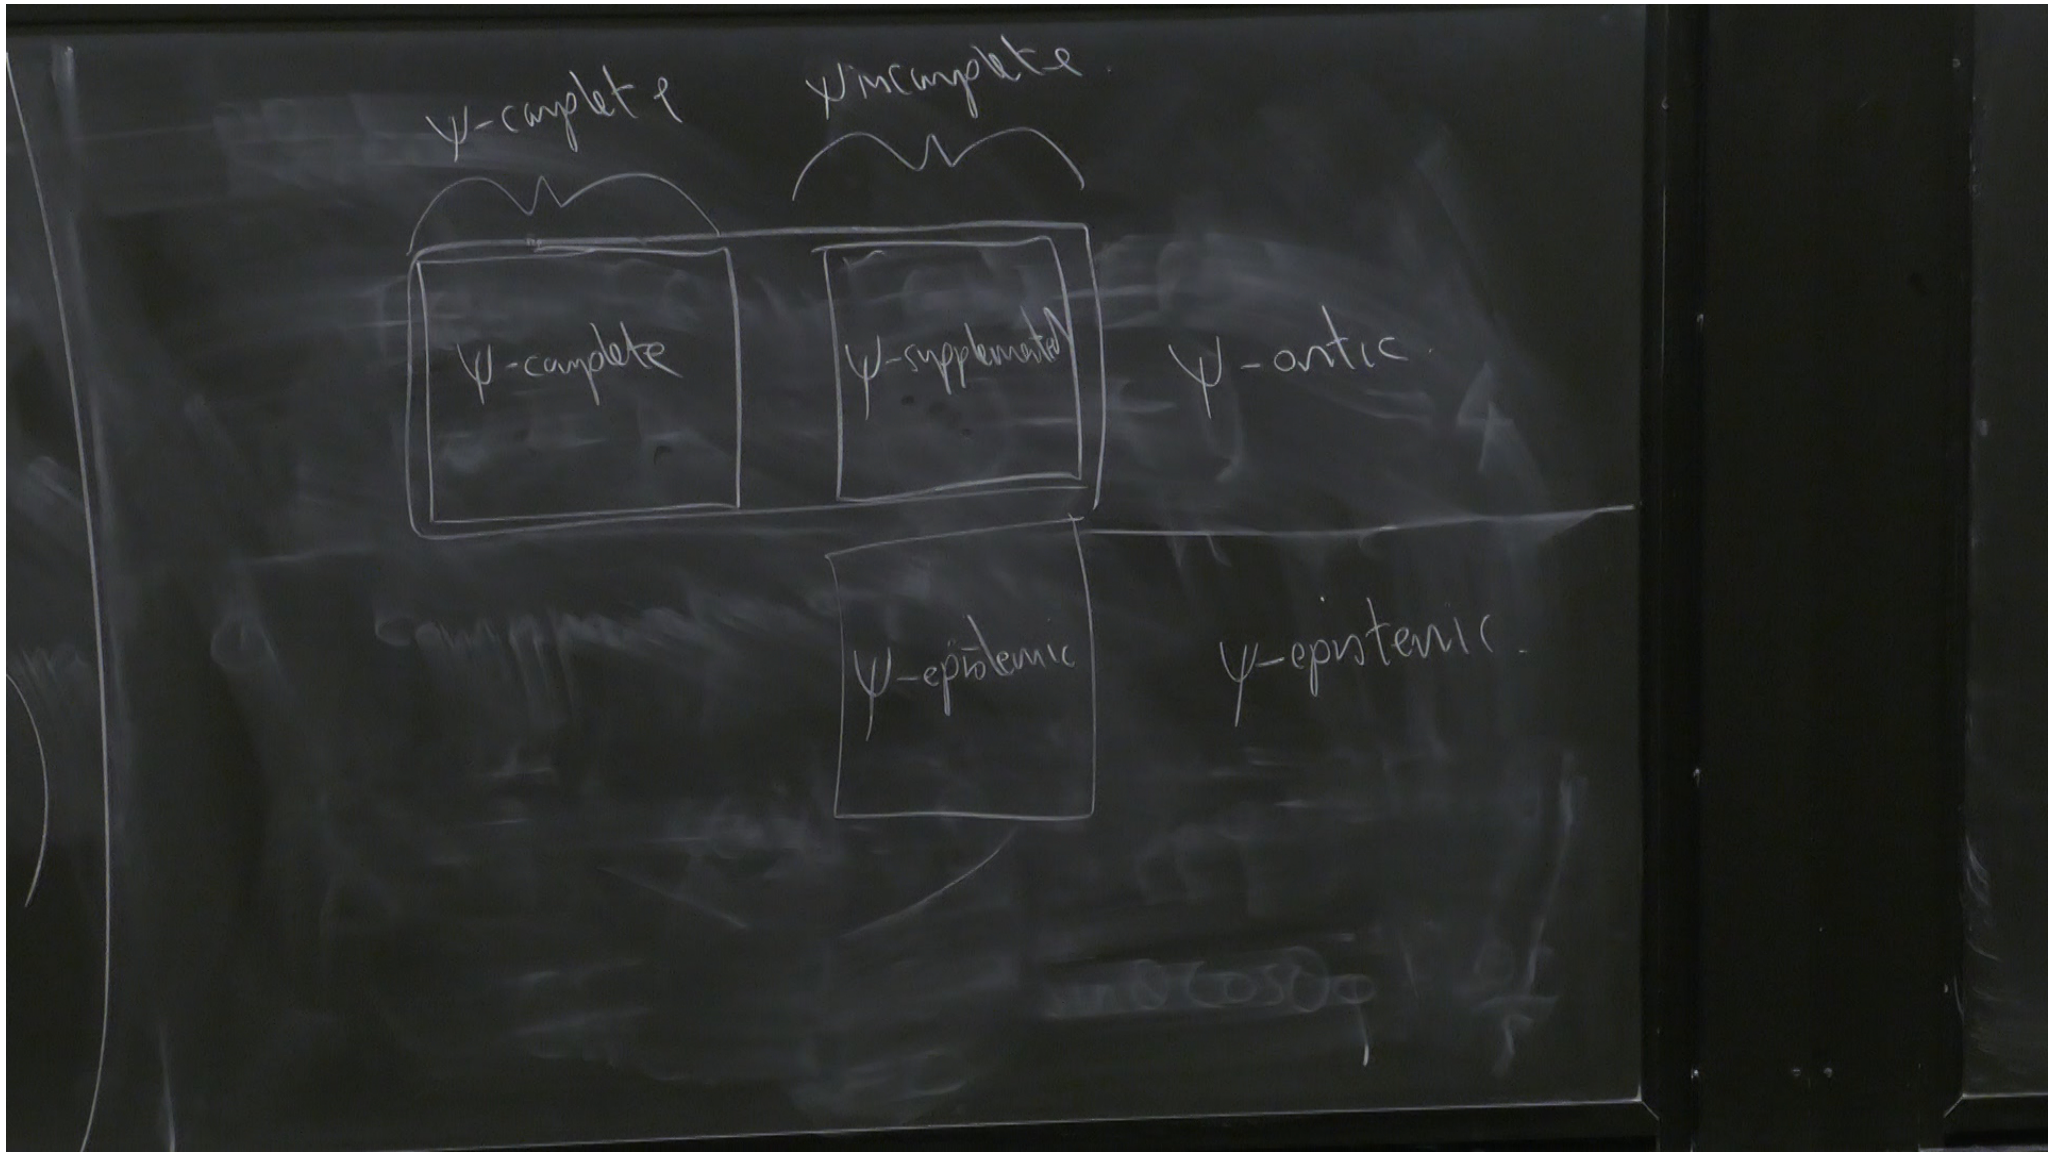 ψ-complete ψ incomplete.
ψ-complete ψ-supplemented ψ-ontic.
ψ-epistemic ψ-epistemic.